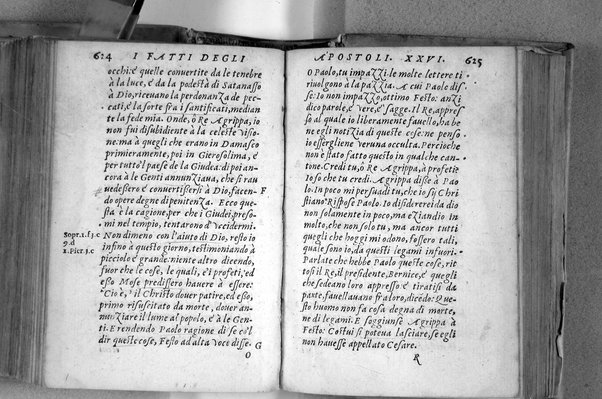 624 I FATTI DEGLI
occhi: è quelle convertite da le tenebre
à la luce, è da la podestà di Satanasso
à Dio, riceuano la perdonanza de pec
cati, è la sorte fra i santificati, median
te la fede mia. Onde, ò Re Agrippa, io
non fui disubidiente à la celeste visio-
ne: ma à quegli che erano in Damasco
primieramente, poi in Gierosolima, è
per tutto l paese de la Giudea: di poi an-
cora à le Genti annunziaua, che si rau
uedessero è conuertisersi à Dio, facen- F
do opere degne di penitenza. Ecco que
sta è la cagione, per che i Giudei, preso-
mi nel tempio, tentarono d'vccidermi.
Sopr. 1.f;c Non dimeno con l'aiuto di Dio, resto io
9.d infino à questo giorno, testimoniando à
1.Pier.5.c picciolo è grande: niente altro dicendo,
fuor che le cose, le quali, è i profeti, ed
esso Mose predissero hauere à essere:
Cio è, il Christo douer patire, ed esso,
primo risuscitato da morte, douer an-
nunziare il lume al popolo, è à le Gen
ti. E rendendo Paolo ragione di se col
dir queste cose, Festo ad alta voce disse. G
O
APOSTOLI. XXVI. 625
O Paolo, tu impazzi: le molte lettere ti
riuolgono à la pazzia. A cui Paolo dis-
se: Io non impazzo, ottimo Festo: anzi
dico parole, è vere, è sagge. Il Re, appres
so al quale io liberamente fauello, ha be
ne egli notizia di queste cose: ne penso
io essergliene veruna occulta. Percioche
non è stato fatto questo in qualche can-
tone. Credi tu, ò Re Agrippa, à profeti?
Io so che tu credi. Agrippa disse à Pao
lo. In poco mi persuadi tu, che io sij Chri
stiano? Rispose Paolo. Io disidererei da dio
non solamente in poco, ma eziandio in
molto, che non solo tu, ma ancor tutti
quegli che hoggi mi odono, fossero tali,
quale sono io, da questi legami infuori.
Parlate che hebbe Paolo queste cose, rit
tosi il Re, il presidente, Bernice, è quegli
che sedeano loro appresso: è tiratisi da
parte, fauellauano fra loro, dicēdo: Que
sto huomo non fa cosa degna di morte,
ne di legami. E soggiunse Agrippa à
Festo: Costui si poteua lasciare, se egli
non hauesse appellato Cesare.
R